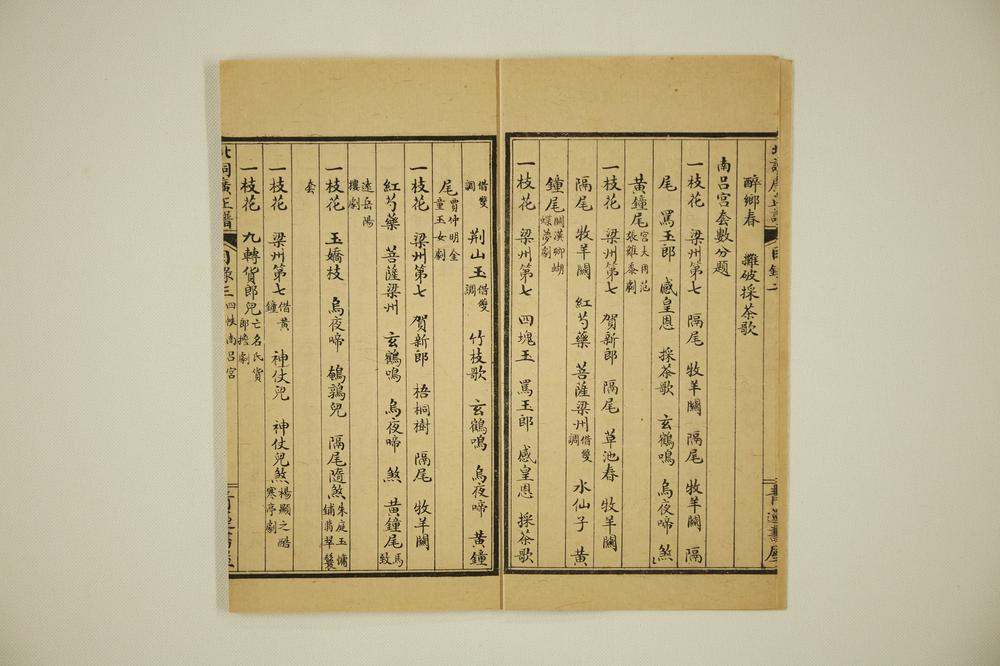 醉鄉春 攤破採茶歌
南呂宮套數分題
一枝花 梁州第七 隔尾 牧羊關 隔尾 牧羊關 隔
尾 罵玉郎 感皇恩 採茶歌 玄鶴鳴 烏夜啼 煞
黃鐘尾 宮大用范張雞黍劇
一枝花 梁州第七 賀新郎 隔尾 草池春 牧羊關
隔尾 牧羊關 紅芍藥 菩薩梁州 借雙調 水仙子 黃
鐘尾 關漢卿蝴蝶夢劇
一枝花 梁州第七 四塊玉 罵玉郎 感皇恩 採茶歌
借雙調 荆山玉 借雙調 竹枝歌 玄鶴鳴 烏夜啼 黃鐘
尾 賈仲明金童玉女劇
一枝花 梁州第七 賀新郎 梧桐樹 隔尾 牧羊關
紅芍藥 菩薩梁州 玄鶴鳴 烏夜啼 煞 黃鐘尾 馬致
遠岳陽樓劇
一枝花 玉嬌枝 烏夜啼 鵪鶉兒 隔尾隨煞 朱庭玉慵鋪翡翠鬟
套
一枝花 梁州第七 借黃鐘 神仗兒 神仗兒煞 楊顯之酷寒亭劇
一枝花 九轉貨郎兒 亡名氏貨郎擔劇
北詞廣正譜 目錄三 四帙南呂宮